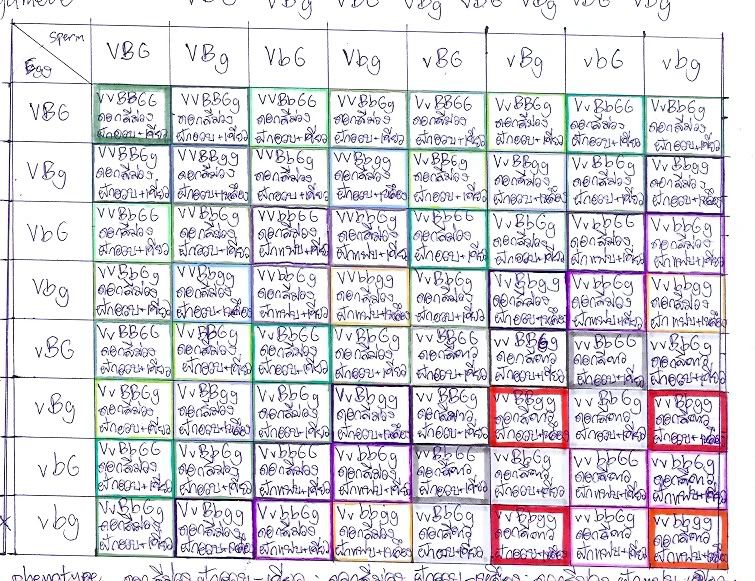 Sperm
Egg
VBG VBg VbG Vbg vBG vBg vbG vbg
VBG
VVBBGG VVBBGg VVBbGG VVBbGg VvBBGG VvBBGg VvBbGG VvBbGg
ดอกสีม่วง ดอกสีม่วง ดอกสีม่วง ดอกสีม่วง ดอกสีม่วง ดอกสีม่วง ดอกสีม่วง ดอกสีม่วง
ฝักอวบ+เขียว ฝักอวบ+เขียว ฝักอวบ+เขียว ฝักอวบ+เขียว ฝักอวบ+เขียว ฝักอวบ+เขียว ฝักอวบ+เขียว ฝักอวบ+เขียว
VBg
VVBBGg VVBBgg VVBbGg VVBbgg VvBBGg VvBBgg VvBbGg VvBbgg
ดอกสีม่วง ดอกสีม่วง ดอกสีม่วง ดอกสีม่วง ดอกสีม่วง ดอกสีม่วง ดอกสีม่วง ดอกสีม่วง
ฝักอวบ+เขียว ฝักอวบ+เหลือง ฝักอวบ+เขียว ฝักอวบ+เหลือง ฝักอวบ+เขียว ฝักอวบ+เหลือง ฝักอวบ+เขียว ฝักอวบ+เหลือง
VbG
VVBbGG VVBbGg VVbbGG VVbbGg VvBbGG VvBbGg VvbbGG VvbbGg
ดอกสีม่วง ดอกสีม่วง ดอกสีม่วง ดอกสีม่วง ดอกสีม่วง ดอกสีม่วง ดอกสีม่วง ดอกสีม่วง
ฝักอวบ+เขียว ฝักอวบ+เขียว ฝักแฟบ+เขียว ฝักแฟบ+เขียว ฝักอวบ+เขียว ฝักอวบ+เขียว ฝักแฟบ+เขียว ฝักแฟบ+เขียว
Vbg
VVBbGg VVBbgg VVbbGg VVbbgg VvBbGg VvBbgg VvbbGg Vvbbgg
ดอกสีม่วง ดอกสีม่วง ดอกสีม่วง ดอกสีม่วง ดอกสีม่วง ดอกสีม่วง ดอกสีม่วง ดอกสีม่วง
ฝักอวบ+เขียว ฝักอวบ+เหลือง ฝักแฟบ+เขียว ฝักแฟบ+เหลือง ฝักอวบ+เขียว ฝักอวบ+เหลือง ฝักแฟบ+เขียว ฝักแฟบ+เหลือง
vBG
VvBBGG VvBBGg VvBbGG VvBbGg vvBBGG vvBBGg vvBbGG vvBbGg
ดอกสีม่วง ดอกสีม่วง ดอกสีม่วง ดอกสีม่วง ดอกสีขาว ดอกสีขาว ดอกสีขาว ดอกสีขาว
ฝักอวบ+เขียว ฝักอวบ+เขียว ฝักอวบ+เขียว ฝักอวบ+เขียว ฝักอวบ+เขียว ฝักอวบ+เขียว ฝักอวบ+เขียว ฝักอวบ+เขียว
vBg
VvBBGg VvBBgg VvBbGg VvBbgg vvBBGg vvBBgg vvBbGg vvBbgg
ดอกสีม่วง ดอกสีม่วง ดอกสีม่วง ดอกสีม่วง ดอกสีขาว ดอกสีขาว ดอกสีขาว ดอกสีขาว
ฝักอวบ+เขียว ฝักอวบ+เหลือง ฝักอวบ+เขียว ฝักอวบ+เหลือง ฝักอวบ+เขียว ฝักอวบ+เหลือง ฝักอวบ+เขียว ฝักอวบ+เหลือง
vbG
VvBbGG VvBbGg VvbbGG VvbbGg vvBbGG vvBbGg vvbbGG vvbbGg
ดอกสีม่วง ดอกสีม่วง ดอกสีม่วง ดอกสีม่วง ดอกสีขาว ดอกสีขาว ดอกสีขาว ดอกสีขาว
ฝักอวบ+เขียว ฝักอวบ+เขียว ฝักแฟบ+เขียว ฝักแฟบ+เขียว ฝักอวบ+เขียว ฝักอวบ+เขียว ฝักแฟบ+เขียว ฝักแฟบ+เขียว
vbg
VvBbGg VvBbgg VvbbGg Vvbbgg vvBbGg vvBbgg vvbbGg vvbbgg
ดอกสีม่วง ดอกสีม่วง ดอกสีม่วง ดอกสีม่วง ดอกสีขาว ดอกสีขาว ดอกสีขาว ดอกสีขาว
ฝักอวบ+เขียว ฝักอวบ+เหลือง ฝักแฟบ+เขียว ฝักแฟบ+เหลือง ฝักอวบ+เขียว ฝักอวบ+เหลือง ฝักแฟบ+เขียว ฝักแฟบ+เหลือง